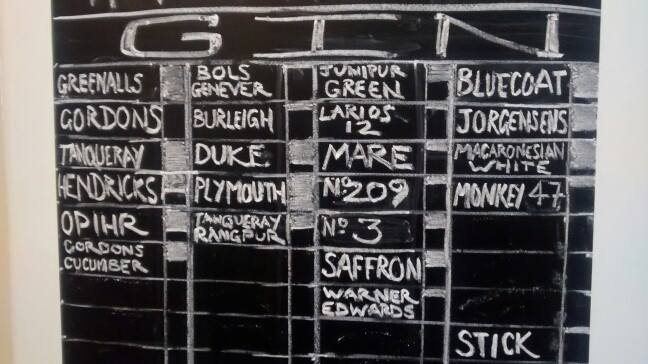 GIN
GREENALLS
GORDONS
TANQUERAY
HENDRICKS
OPIHR
GORDONS
CUCUMBER
BOLS
GENEVER
BURLEIGH
DUKE
PLYMOUTH
TANQUERAY
RANGPUR
JUNIPUR
GREEN
LARIOS
12
MARE
Nº209
Nº 3
SAFFRON
WARNER
EDWARDS
BLUECOAT
JORGENSENS
MACARONESIAN
WHITE
MONKEY 47
STICK